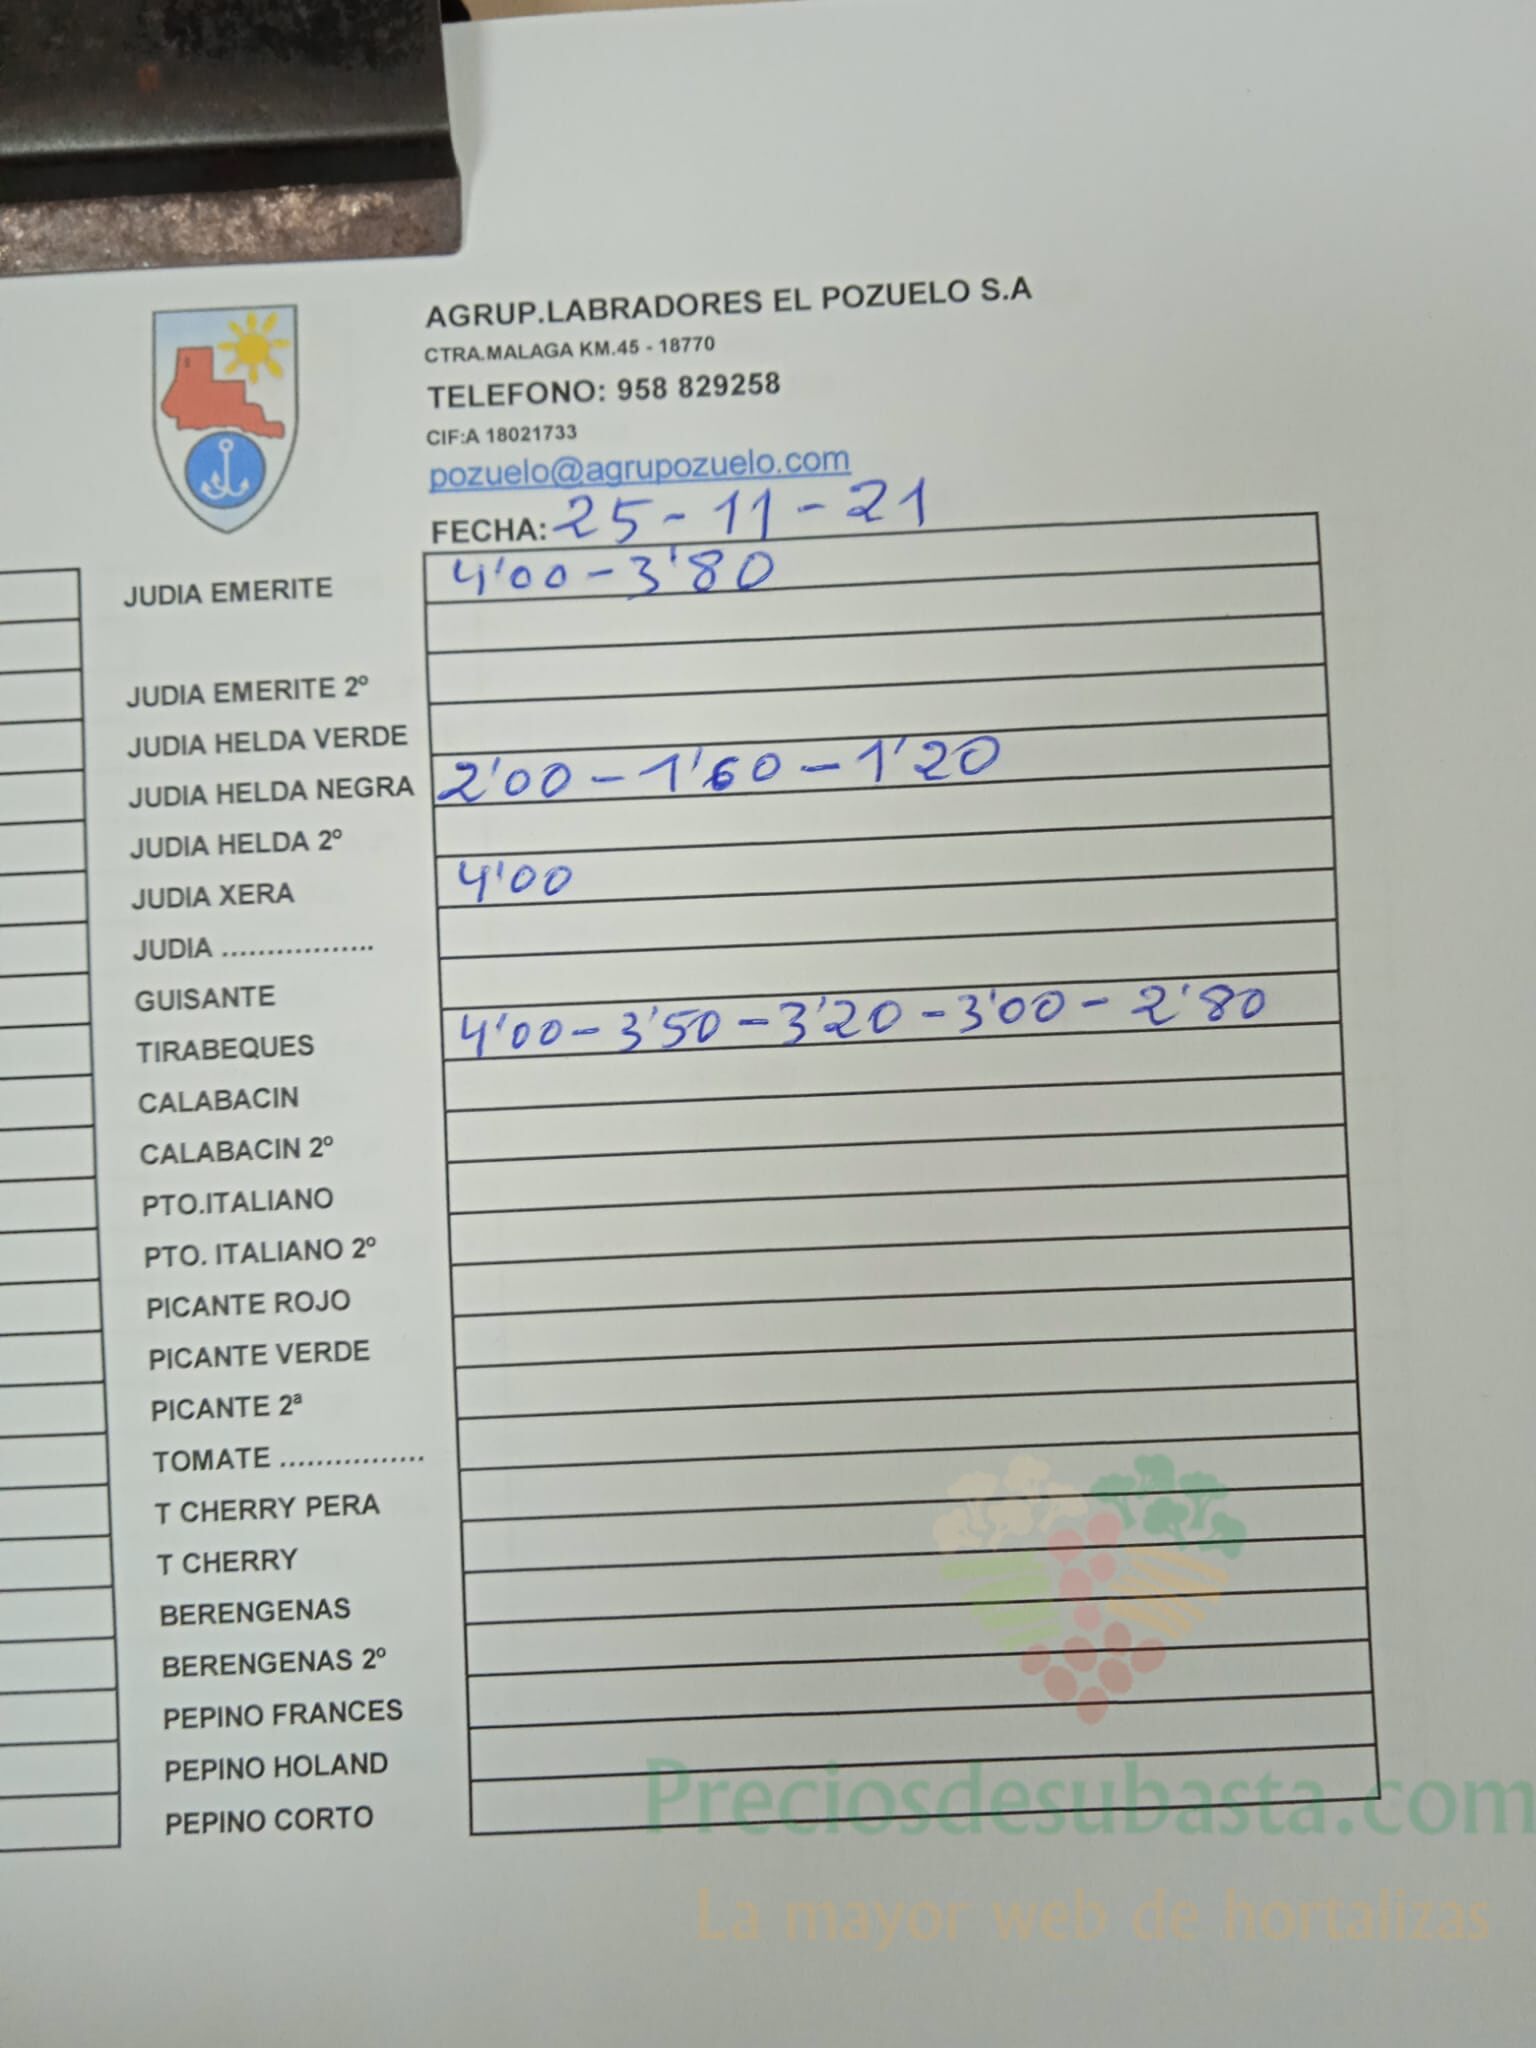 AGRUP.LABRADORES EL POZUELO S.A
CTRA.MALAGA KM.45 - 18770
TELEFONO: 958 829258
CIF:A 18021733
pozuelo@agrupozuelo.com
FECHA: 25-11-21
JUDIA EMERITE 4'00-3'80
JUDIA EMERITE 2º
JUDIA HELDA VERDE
JUDIA HELDA NEGRA 2'00-1'60-1'20
JUDIA HELDA 2º
JUDIA XERA 4'00
JUDIA .................
GUISANTE
TIRABEQUES 4'00-3'50-3'20-3'00-2'80
CALABACIN
CALABACIN 2º
PTO.ITALIANO
PTO. ITALIANO 2º
PICANTE ROJO
PICANTE VERDE
PICANTE 2ª
TOMATE ................
T CHERRY PERA
T CHERRY
BERENGENAS
BERENGENAS 2º
PEPINO FRANCES
PEPINO HOLAND
PEPINO CORTO
Preciosdesubasta.com
La mayor web de hortalizas